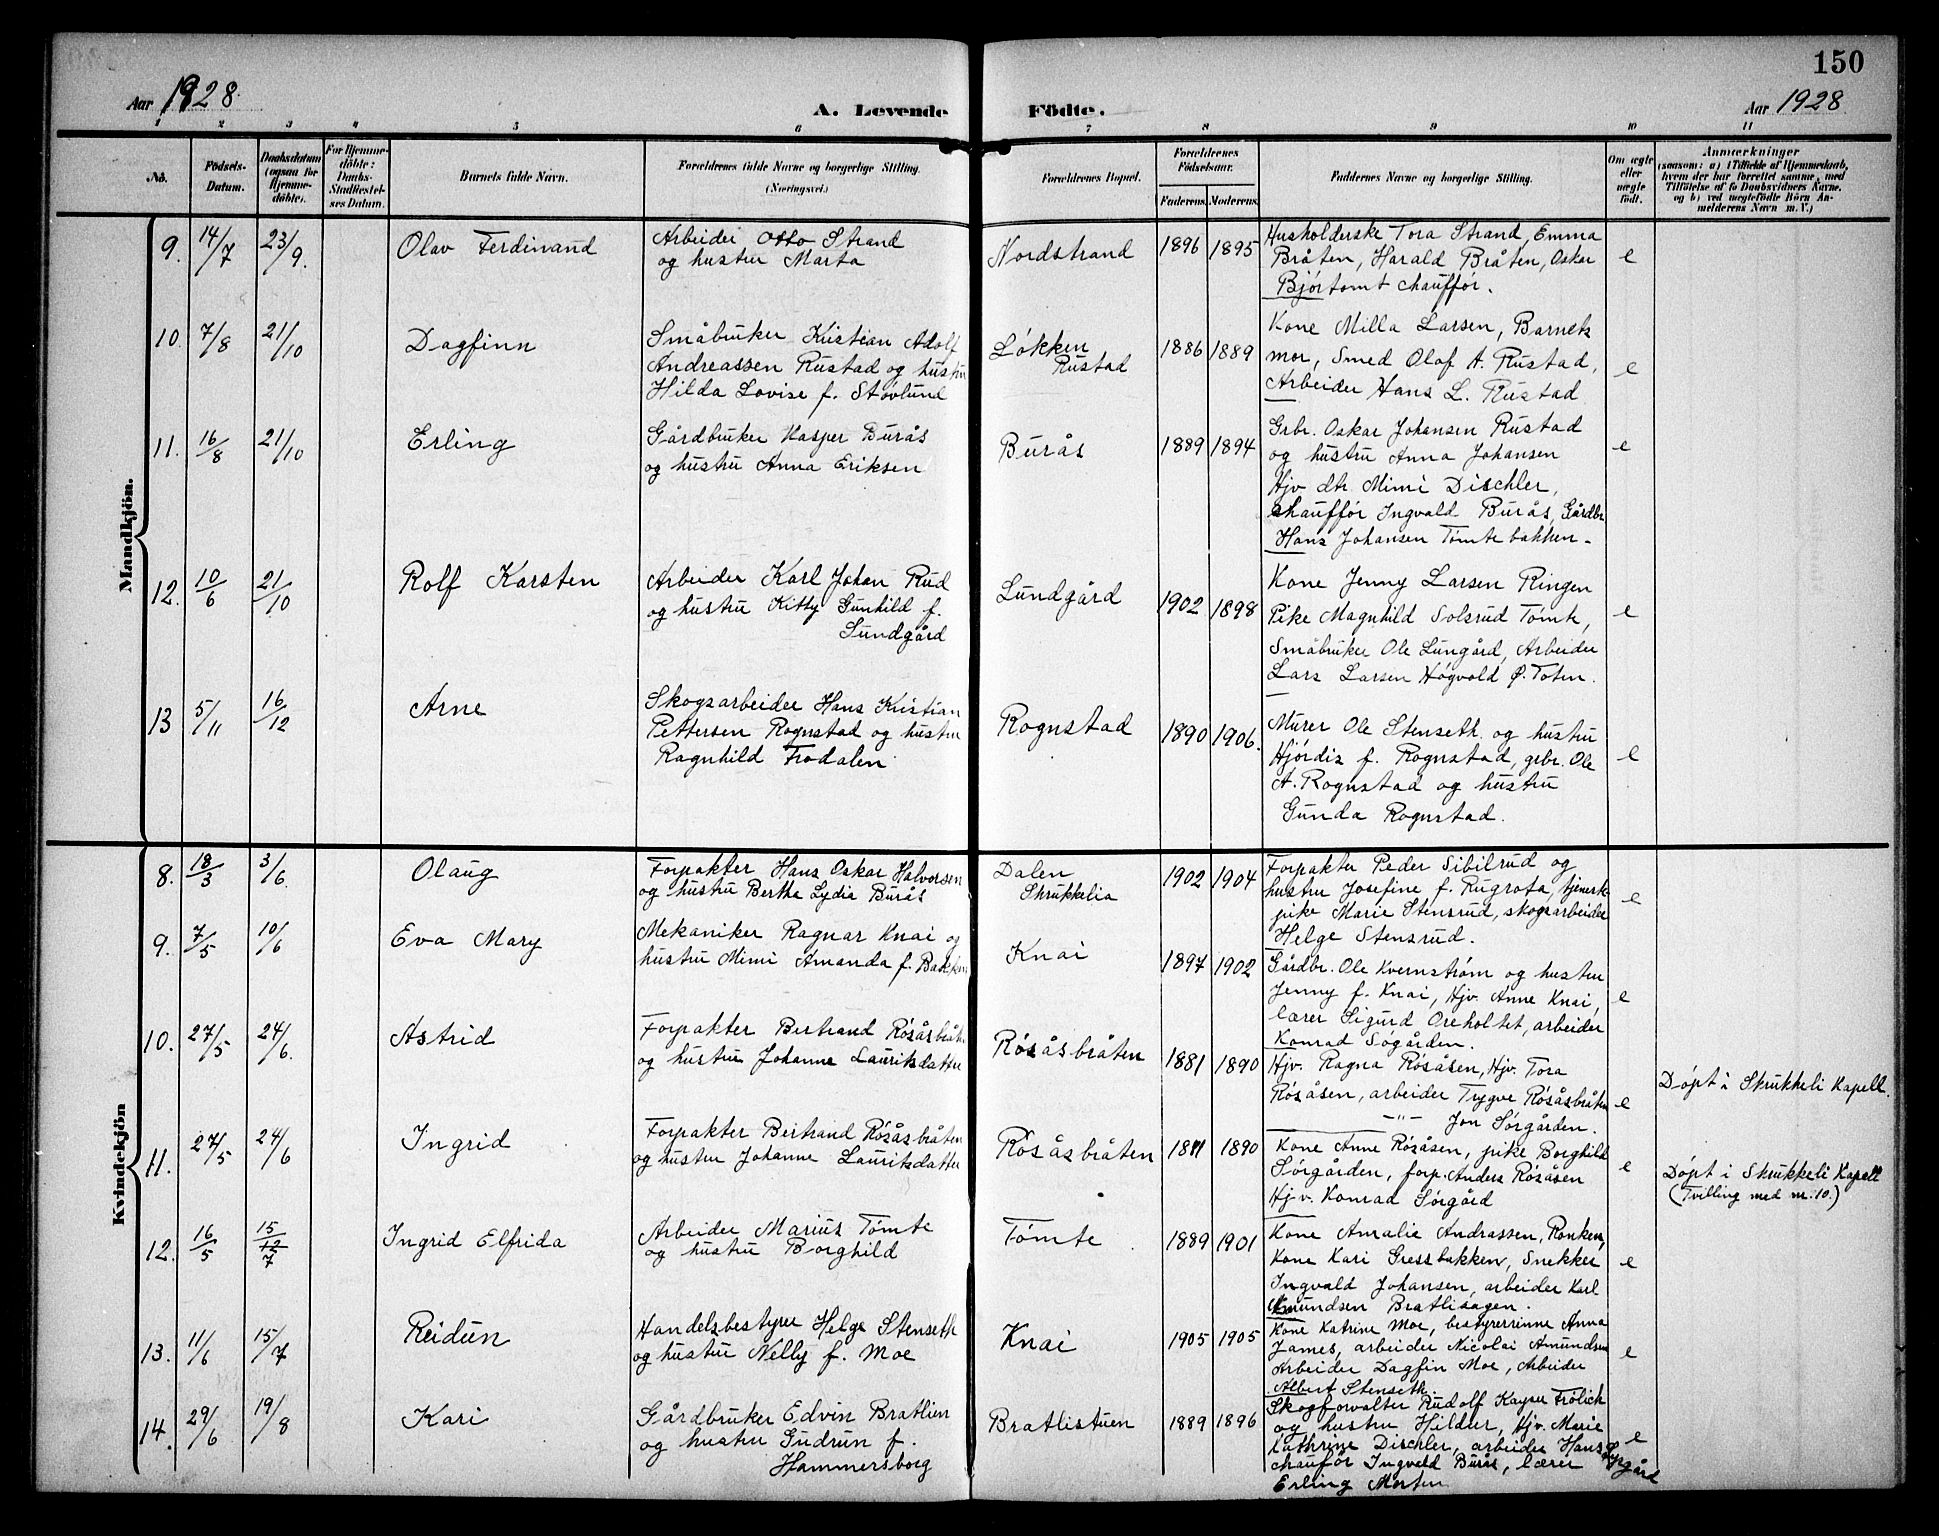 150
Aar 1928.
A. Levende Födte.
Aar 1928
1 2 3 4 5 6 7 8 9 10 11
No.
Födsels-
Datum.
Daabsdatum
(ogsaa for
Hjemme-
döbte).
For Hjemme-
döbte:
Daabs-
Stadfæstel-
ses Datum.
Barnets fulde Navn.
Forældrenes fulde Navne og borgerlige Stilling.
(Næringsvei.)
Forældrenes Bopæl.
Forældrenes
Födselsaar.
Faderens. Moderens.
Faddernes Navne og borgerlige Stilling.
Om ægte
eller
uægte
födt.
Anmærkninger
(saasom: a) i Tilfælde af Hjemmedaab,
hvem der har forrettet samme, med
Tilföielse af to Daabsvidners Navne,
og b) ved uægtefödte Börn An-
melderens Navn m. V.)
Mandkjön.
9. 14/7 23/9. Olav Ferdinand
Arbeider Otto Strand
og hustru Marta
Nordstrand 1896 1895
Husholderske Tora Strand, Emma
Bråten, Harald Bråten, Oskar
Bjørtomt chauffør.
e
10. 7/8 21/10 Dagfinn
Småbruker Kristian Adolf
Andreassen Rustad og hustru
Hilda Lovise f. Støvlund
Løkken
Rustad
1886 1889
Kone Milla Larsen, Barnets
mor, Smed Olaf A. Rustad,
Arbeider Hans L. Rustad
e
11. 16/8 21/10 Erling
Gårdbruker Kasper Burås
og hustru Anna Eriksen
Burås 1889 1894
Grbr. Oskar Johansen Rustad
og hustru Anna Johansen
Hjv dtr. Mimi Dischler,
chauffør Ingvald Burås, Gårdbr
Hans Johansen Tømtebakken-
e
12. 10/6 21/10 Rolf Karsten
Arbeider Karl Johan Rud
og hustru Kitty Gunhild f.
Lundgård
Lundgård 1902 1898
Kone Jenny Larsen Ringen
Pike Magnhild Solsrud Tømte,
Småbruker Ole Lungård, Arbeider
Lars Larsen Høgvold Ø. Toten.
e
13 5/11 16/12 Arne
Skogsarbeider Hans Kristian
Pettersen Rognstad og hustru
Ragnhild Frodalen
Rognstad 1890 1906.
Murer Ole Stenseth og hustru
Hjørdis f. Rognstad, grbr. Ole
A. Rognstad og hustru
Gunda Rognstad.
e
Kvindekjön
8. 18/3 3/6. Olaug
Forpakter Hans Oskar Halvorsen
og hustru Bertha Lydia Burås
Dalen
Skrukkelia
1902 1904
Forpakter Peder Sibilrud og
hustru Josefine f. Rugrofa, tjeneste
pike Marie Stensrud, skogsarbeider
Helge Stensrud.
e
9. 7/5 10/6 Eva Mary
Mekaniker Ragnar Knai og
hustru Mimi Amanda f. Bakken
Knai 1897 1902
Gårdbr. Ole Kvernstrøm og hustru
Jenny f. Knai, Hjv. Anne Knai,
lærer Sigurd Oreholtet, arbeider
Konrad Søgården.
e
10. 27/5 24/6. Astrid
Forpakter Bertrand Røsåsbråten
og hustru Johanne Lauritsdatter
Røsåsbråten 1881 1890
Hjv. Ragna Røsåsen, Hjv. Tora
Røsåsen, arbeider Trygve Røsåsbråten
-"- Jon Sørgården.
e
Døpt i Skrukkeli Kapell.
11. 27/5 24/6 Ingrid
Forpakter Bertrand Røsåsbråten
og hustru Johanne Lauritsdatter
Røsåsbråten 1881 1890
Kone Anne Røsåsen, pike Borghild
Sørgården, forp. Anders Røsåsen
Hjv. Konrad Sørgård
e
Døpt i Skrukkeli Kapell
(Tvilling med nr. 10.)
12. 16/5 15/7 Ingrid Elfrida
Arbeider Marius Tømte
og hustru Borghild
Tømte 1889 1901
Kone Amalie Andrassen, Ronken,
Kone Kari Gressbakken, Snekker
Ingvald Johansen, arbeider Karl
Amundsen Bratlisagen.
e
13. 11/6 15/7 Reidun
Handelsbestyrer Helge Stenseth
og hustru Nelly f. Moe
Knai 1905 1905
Kone Katrine Moe, bestyrerrinne Anna
James, arbeider Nicolai Amundsen
Arbeider Dagfin Moe, Arbeider
Albert Stenseth.
e
14. 29/6 19/8 Kari
Gårdbruker Edvin Bratlien
og hustru Gudrun f.
Hammersborg
Bratlistuen 1889 1896
Skogforvalter Rudolf Kayser Frølich
og hustru Hildur, Hjv. Marie
Kathrine Dischler, arbeider Hans
chauffør Ingvald Burås, lærer
Erling Morten
e